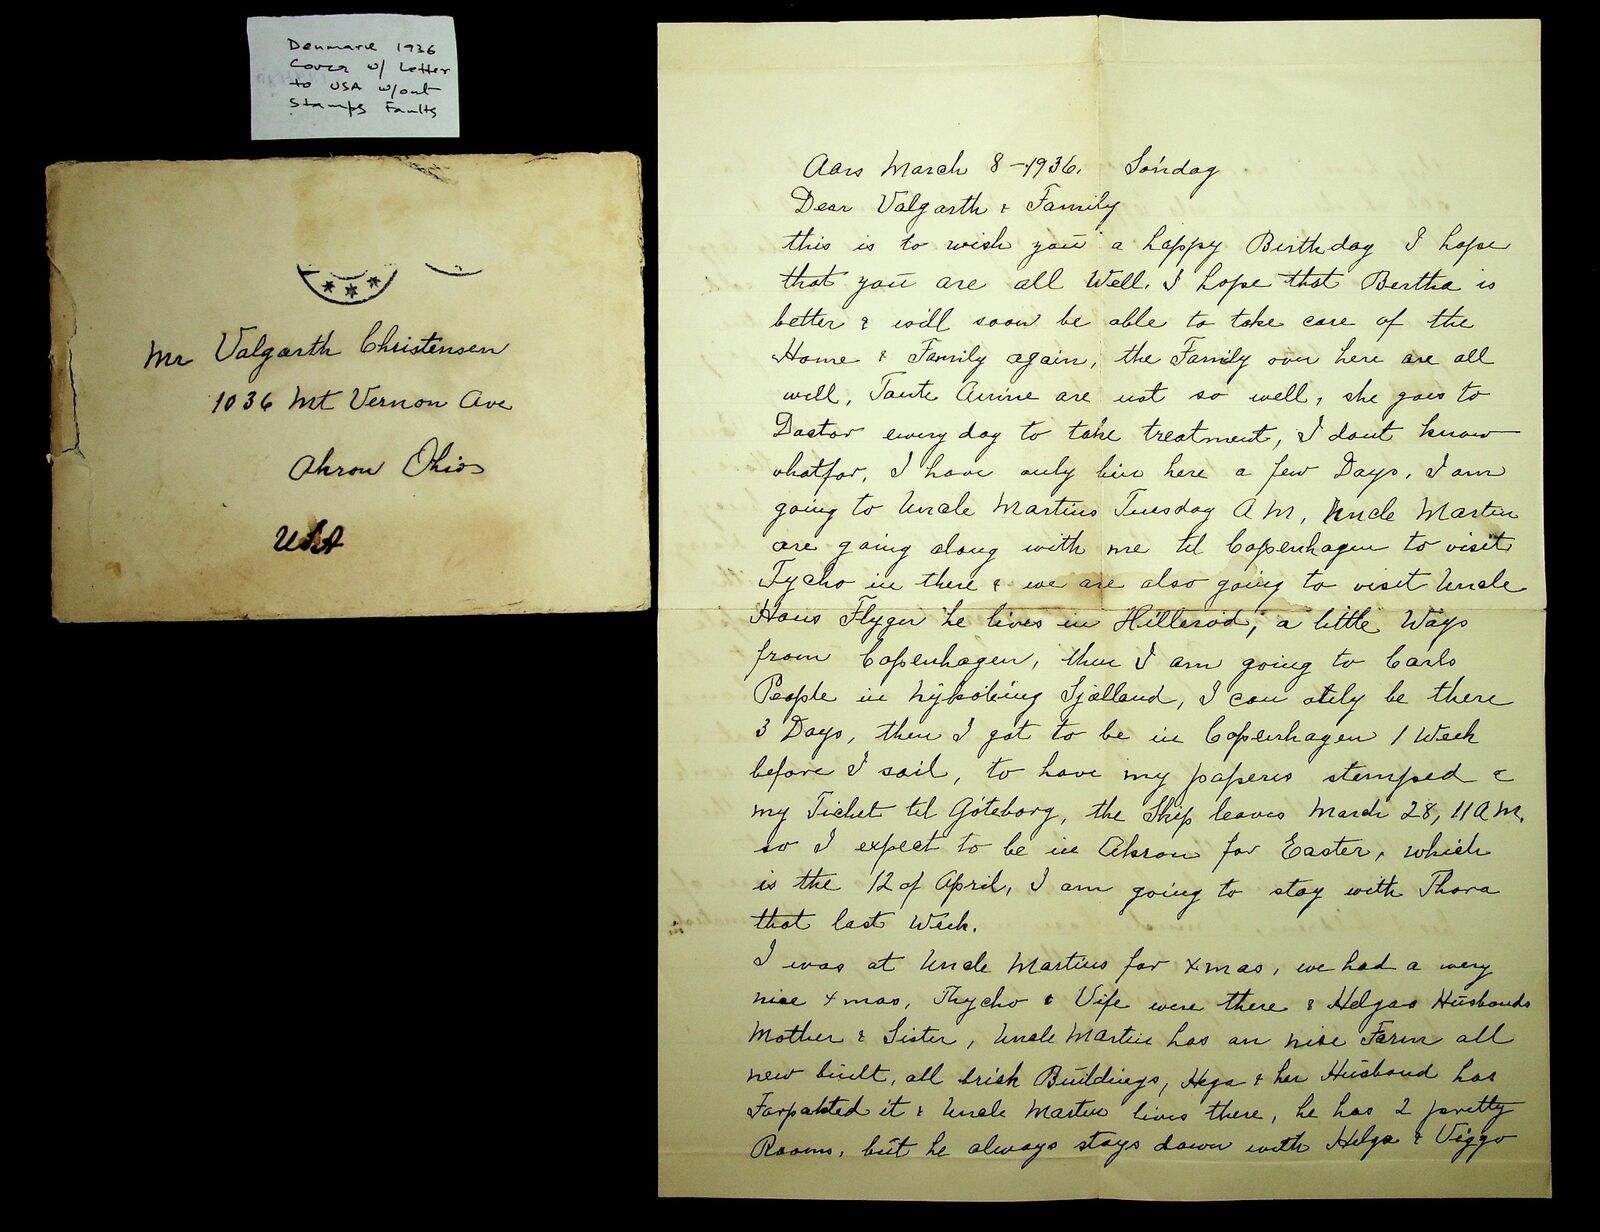 Denmark 1936
Cover w/ Letter
to USA w/out
Stamps Faults
Mr Valgarth Christensen
1036 Mt Vernon Ave
Akron Ohio
USA
Aars March 8-1936. Söndag
Dear Valgarth & Family
this is to wish you a happy Birthday I hope
that you are all Well. I hope that Bertha is
better & will soon be able to take care of the
Home & Family again, the Family over here are all
well, Tante Anine are not so well, she goes to
Doctor every day to take treatment, I dont know
whatfor, I have only bin here a few Days, I am
going to Uncle Martins Tuesday A M, Uncle Martin
are going along with me til Copenhagen to visit
Tycho in there & we are also going to visit Uncle
Hans Flyger he lives in Hilleröd, a little Ways
from Copenhagen, then I am going to Carls
People in Nyköbing Sjælland, I can only be there
3 Days, then I got to be in Copenhagen 1 Week
before I sail, to have my papers stemped &
my Ticket til Göteborg, the Ship leaves March 28, 11 A M.
so I expect to be in Akron for Easter, which
is the 12 of April, I am going to stay with Thora
that last Week.
I was at Uncle Martins for Xmas, we had a very
nice Xmas, Thycho & Vife were there & Helgas Husbands
Mother & Sister, Uncle Martin has an nise Farm all
new built, all brick Buildings, Hega & her Husband has
Forpakted it & Uncle Martin lives there, he has 2 pretty
Rooms, but he always stays down with Helga & Viggo